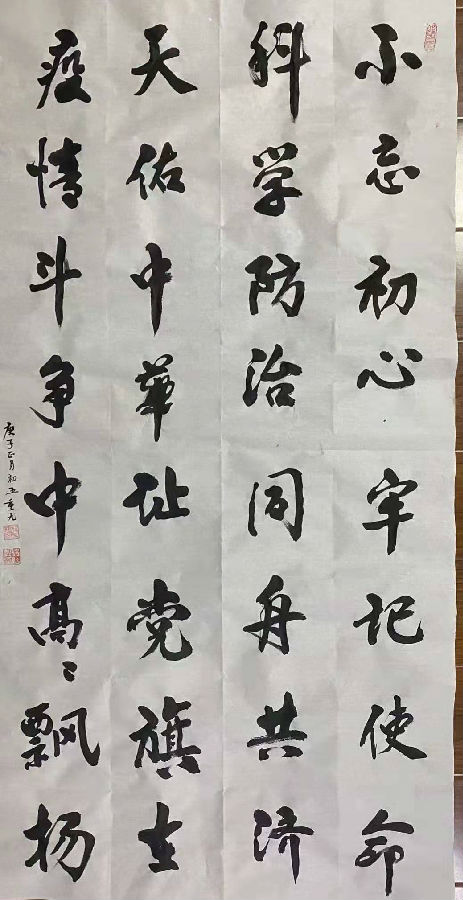 不忘初心牢记使命
科学防治同舟共济
天佑中华让党旗在
疫情斗争中高高飘扬
庚子正月初五